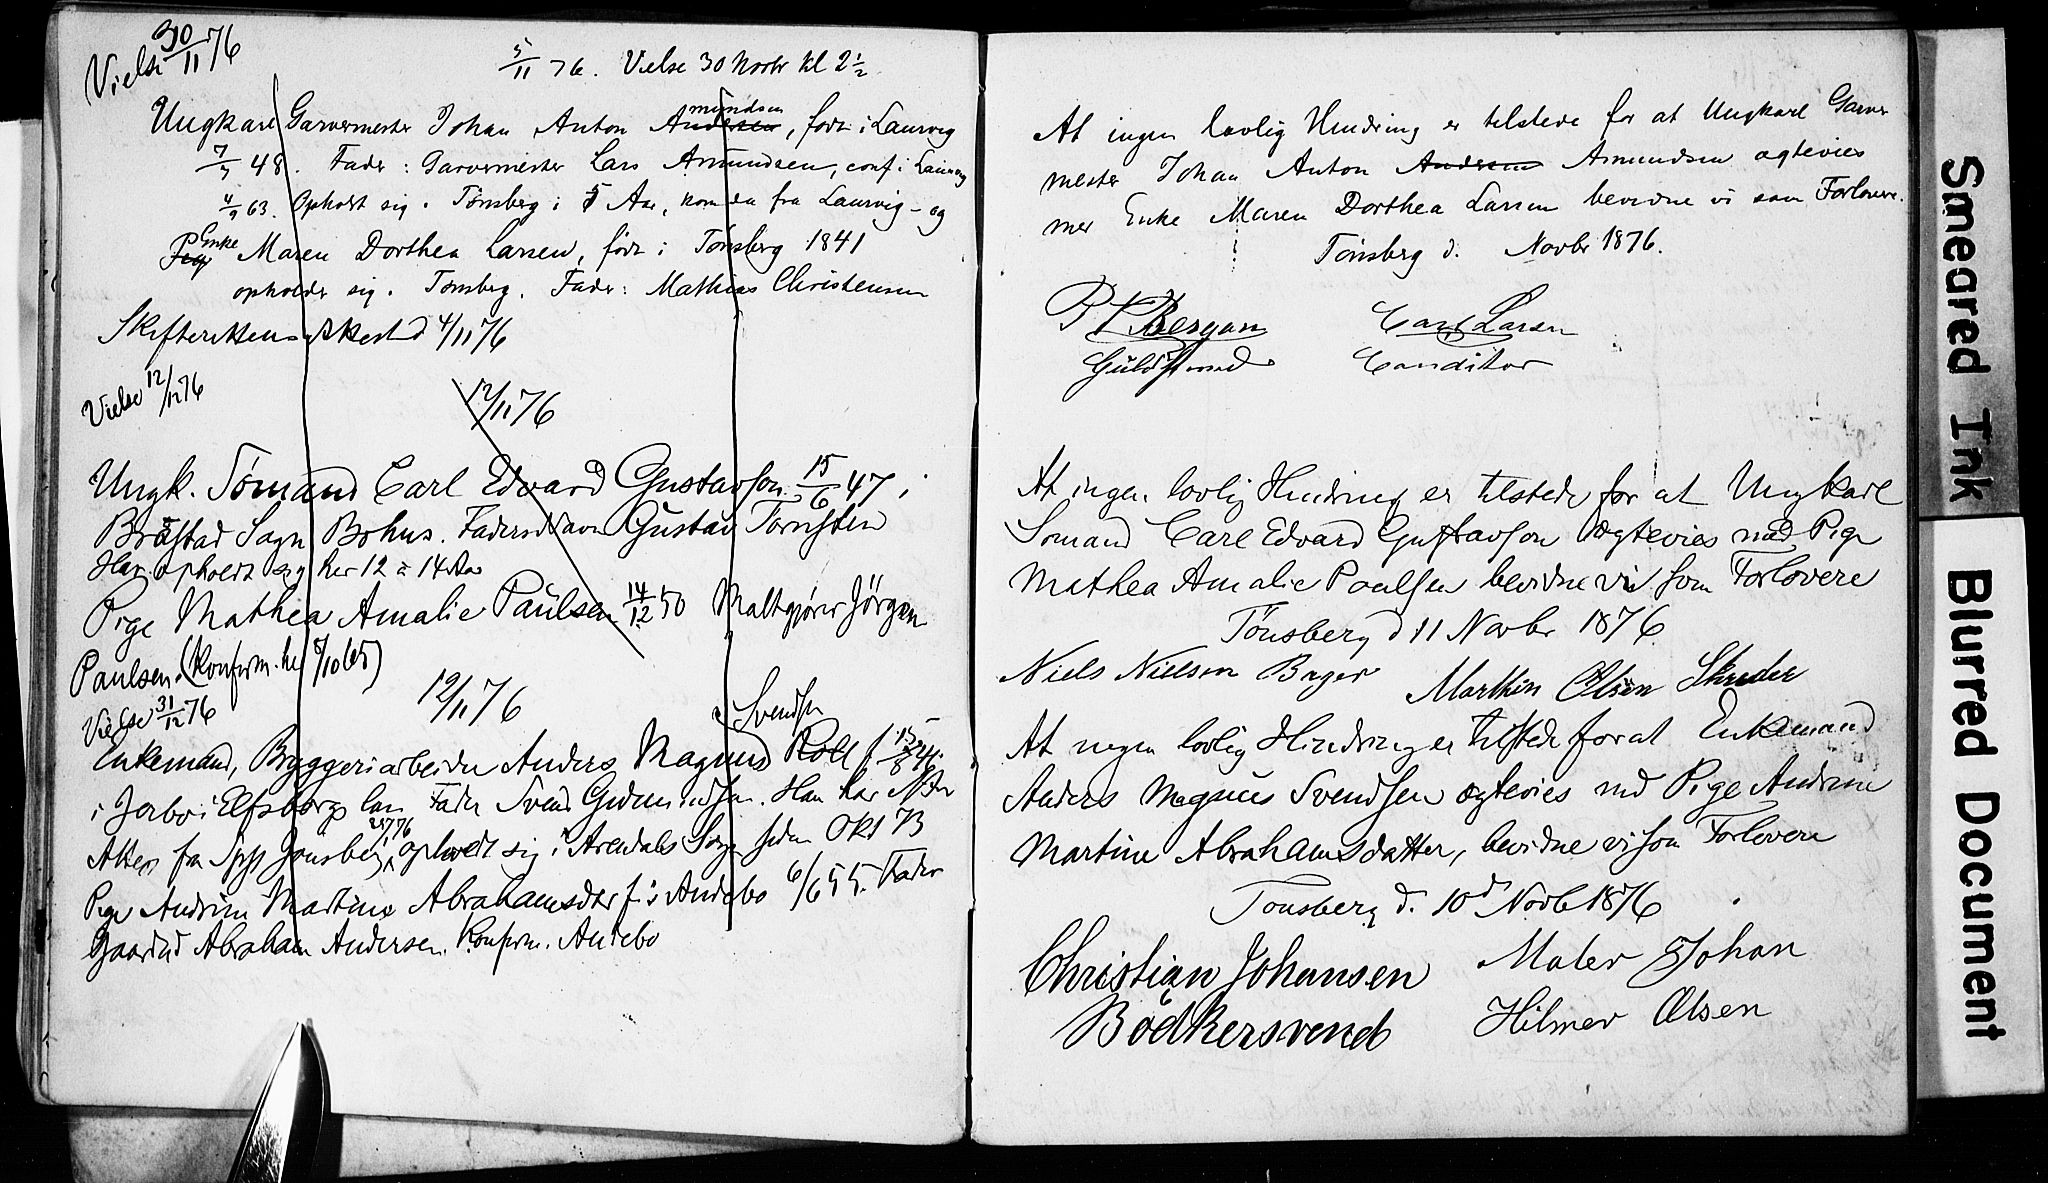 Vielse 30/11 76
5/11 76. Vielse 30 Novbr kl 2 1/2
Ungkarl Garvermester Johan Anton Andersen mundsen, født i Laurvig
48. Fader: Garvermester Lars Amundsen, conf. i Laurvig
4/9 63. Opholdt sig i Tønsberg i 5 Aar, kom da fra Laurvig - og
Pige Enke Maren Dorthea Larsen, født i Tønsberg 1841
opholder sig i Tønsberg. Fader: Mathias Christensen
Skifterettens Attest d 4/11 76
Vielse 12/12 76
12/11 76
Ungk. Sømand Carl Edvard Gustavson 15/6 47 i
Brastad Sogn Bohus. Faders Navn Gustav Torsten
Har opholdt sig her 12 à 14 Aar
Pige Mathea Amalie Paulsen 14/12 50 Maltgjører Jörgen
Paulsen. (Konfirm. her 8/10 65)
Vielse 31/12 76
12/11 76
Svendsen
Enkemand, Bryggeriarbeider Anders Magnus Roll f 15/8 44
i Jerbo i Elfsborgs len Fader Svend Gudmundsen. Han har
Attest fra Sp 76 opholdt sig i Arendals Sogn siden Okt 73
Pige Andrine Martine Abrahamsdtr f. i Andebo 6/6 55. Fader
Gaardbr Abraham Andersen. Konfirm. Andebo
At ingen lovlig Hindring er tilstede for at Ungkarl Garver
mester Johan Anton Andersen Amundsen ægtevies
med Enke Maren Dorthea Larsen bevidne vi som Forlovere.
Tønsberg d. Novbr 1876.
P Bergan Carl Larsen
Guldsmed Conditor
At ingen lovlig Hindring er tilstede for at Ungkarl
Sømand Carl Edvard Gustavson ægtevies med Pige
Mathea Amalie Paulsen bevidne vi som Forlovere
Tönsberg d 11 Novbr 1876
Niels Nielsen Bager Marthin Olsen Skreder
At ingen lovlig Hindring er tilstede for at Enkemand
Anders Magnus Svendsen ægtevies med Pige Andrine
Martine Abrahamsdatter, bevidne vi som Forlovere
Tønsberg d. 10d Novb 1876
Christian Johansen Maler Johan
Bödkersvend Hilmer Olsen
Smeared Ink
Blurred Document